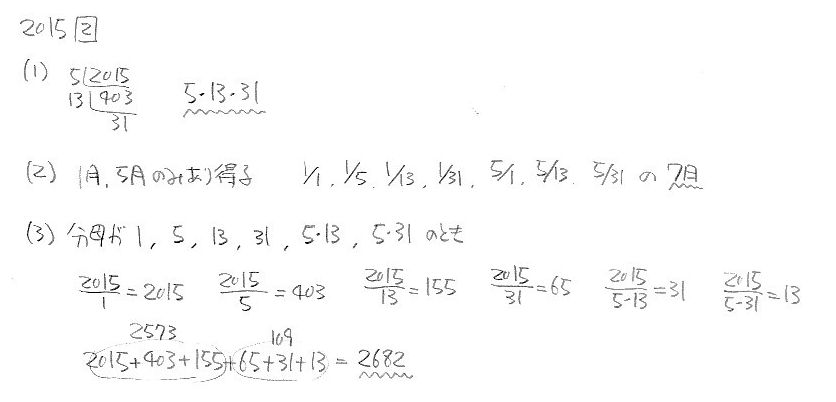 2015 2
(1) 5)2015 5・13・31
13)403
31
(2) 1月, 5月のみあり得る 1/1, 1/5, 1/13, 1/31, 5/1, 5/13, 5/31 の 7日
(3) 分母が 1, 5, 13, 31, 5・13, 5・31 のとき
2015/1=2015 2015/5=403 2015/13=155 2015/31=65 2015/5・13=31 2015/5・31=13
2573 109
2015+403+155+65+31+13=2682